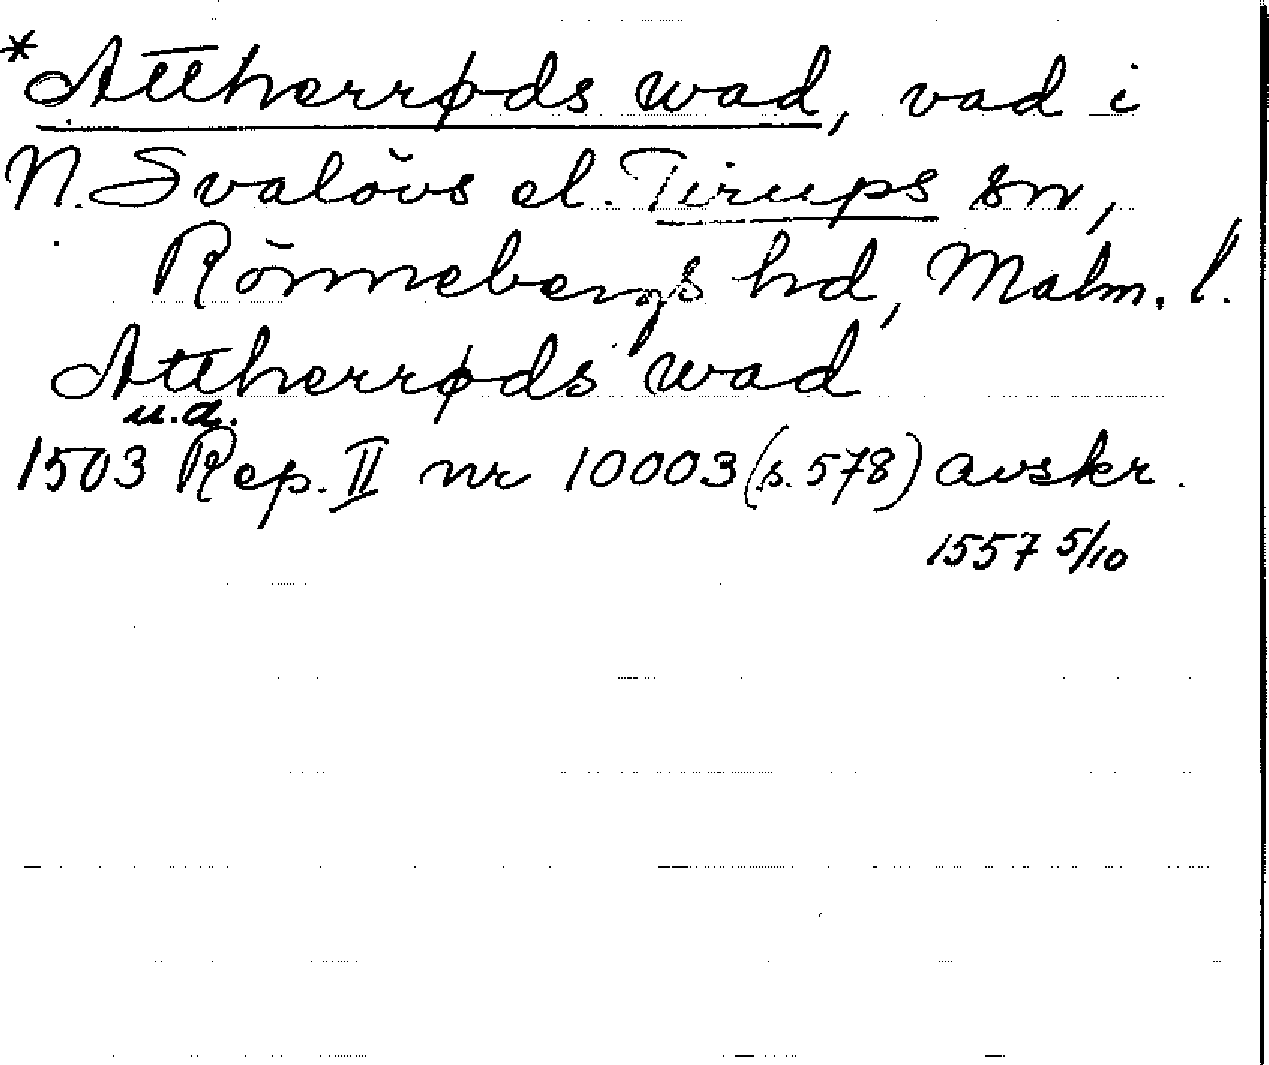 *Attherrøds wad, vad i
N. Svalövs el. Tirups sn,
Rönnebergs hd, Malm. l.
Attherrøds wad
u.d.
1503 Rep. II nr 10003 (s. 578) avskr.
1557 5/10